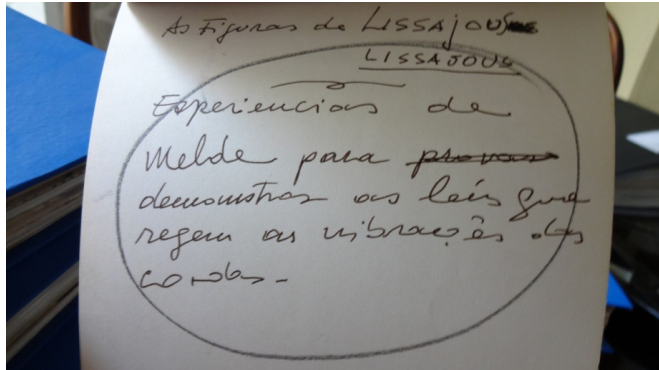 As Figuras de LISSAJOUS
LISSAJOUS
Experiencias de
Melde para provar
demonstrar as leis que
regem as vibrações das
cordas.